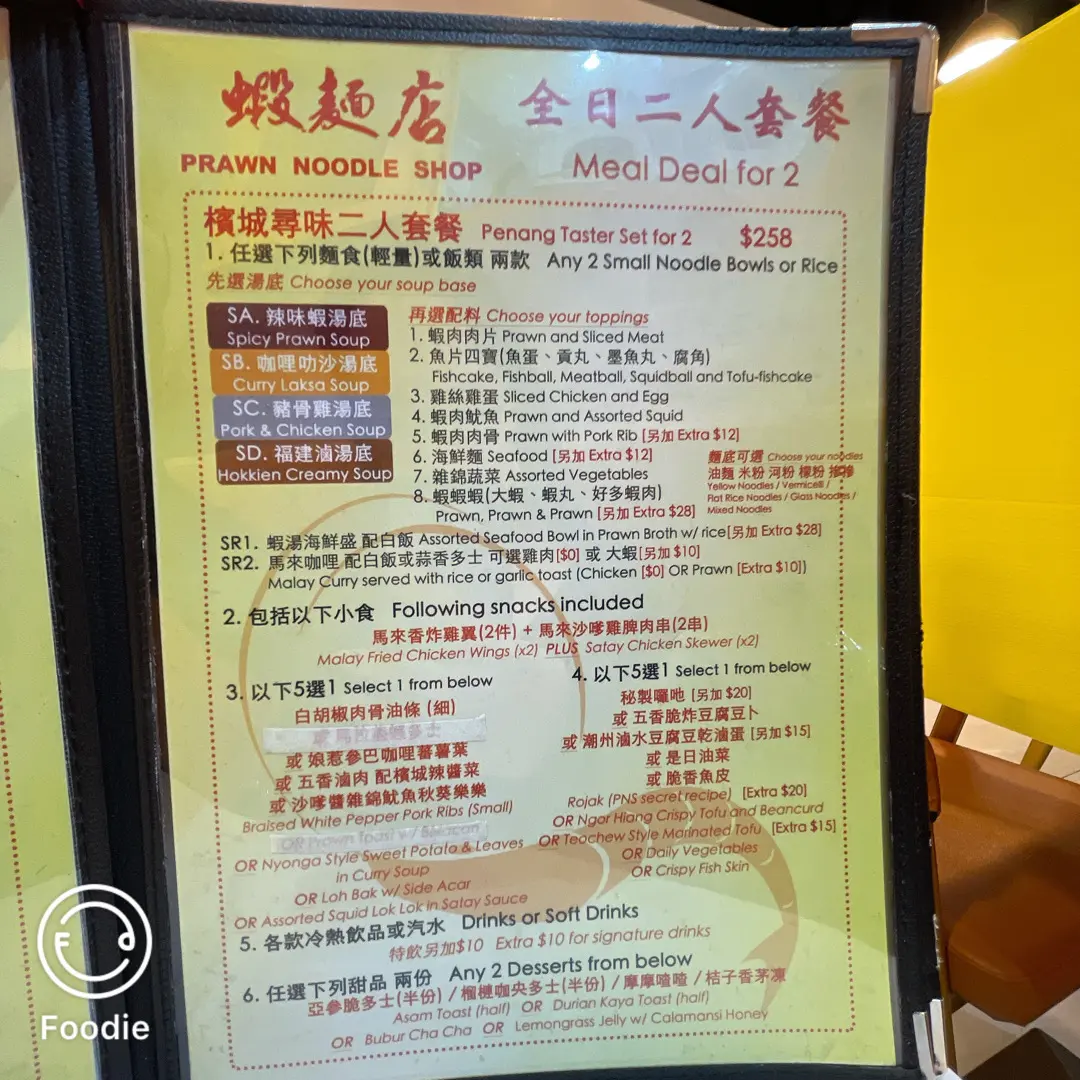 蝦麵店 全日二人套餐
PRAWN NOODLE SHOP Meal Deal for 2
檳城尋味二人套餐 Penang Taster Set for 2 $258
1. 任選下列麵食(輕量)或飯類 兩款 Any 2 Small Noodle Bowls or Rice
先選湯底 Choose your soup base
SA. 辣味蝦湯底
Spicy Prawn Soup
SB. 咖哩叻沙湯底
Curry Laksa Soup
SC. 豬骨雞湯底
Pork & Chicken Soup
SD. 福建滷湯底
Hokkien Creamy Soup
再選配料 Choose your toppings
1. 蝦肉肉片 Prawn and Sliced Meat
2. 魚片四寶(魚蛋、貢丸、墨魚丸、腐角)
Fishcake, Fishball, Meatball, Squidball and Tofu-fishcake
3. 雞絲雞蛋 Sliced Chicken and Egg
4. 蝦肉魷魚 Prawn and Assorted Squid
5. 蝦肉肉骨 Prawn with Pork Rib [另加 Extra $12]
6. 海鮮麵 Seafood [另加 Extra $12]
7. 雜錦蔬菜 Assorted Vegetables
8. 蝦蝦蝦(大蝦、蝦丸、好多蝦肉)
Prawn, Prawn & Prawn [另加 Extra $28]
麵底可選 Choose your noodles
油麵 米粉 河粉 檬粉
Yellow Noodles / Vermicelli /
Flat Rice Noodles / Glass Noodles /
Mixed Noodles
SR1. 蝦湯海鮮盛 配白飯 Assorted Seafood Bowl in Prawn Broth w/ rice[另加 Extra $28]
SR2. 馬來咖哩 配白飯或蒜香多士 可選雞肉[$0] 或 大蝦[另加 $10]
Malay Curry served with rice or garlic toast (Chicken [$0] OR Prawn [Extra $10])
2. 包括以下小食 Following snacks included
馬來香炸雞翼(2件) + 馬來沙嗲雞脾肉串(2串)
Malay Fried Chicken Wings (x2) PLUS Satay Chicken Skewer (x2)
3. 以下5選1 Select 1 from below
白胡椒肉骨油條 (細)
或 娘惹參巴咖哩蕃薯葉
或 五香滷肉 配檳城辣醬菜
或 沙嗲醬雜錦魷魚秋葵樂樂
Braised White Pepper Pork Ribs (Small)
OR Prawn Toast w/ Belacan
OR Nyonga Style Sweet Potato & Leaves
in Curry Soup
OR Loh Bak w/ Side Acar
OR Assorted Squid Lok Lok in Satay Sauce
4. 以下5選1 Select 1 from below
秘製囉吔 [另加 $20]
或 五香脆炸豆腐豆卜
或 潮州滷水豆腐豆乾滷蛋 [另加 $15]
或 是日油菜
或 脆香魚皮
Rojak (PNS secret recipe) [Extra $20]
OR Ngor Hiang Crispy Tofu and Beancurd
OR Teochew Style Marinated Tofu [Extra $15]
OR Daily Vegetables
OR Crispy Fish Skin
5. 各款冷熱飲品或汽水 Drinks or Soft Drinks
特飲另加$10 Extra $10 for signature drinks
6. 任選下列甜品 兩份 Any 2 Desserts from below
亞參脆多士(半份) / 榴槤咖央多士(半份) / 摩摩喳喳 / 桔子香茅凍
Asam Toast (half) OR Durian Kaya Toast (half)
OR Bubur Cha Cha OR Lemongrass Jelly w/ Calamansi Honey
Foodie